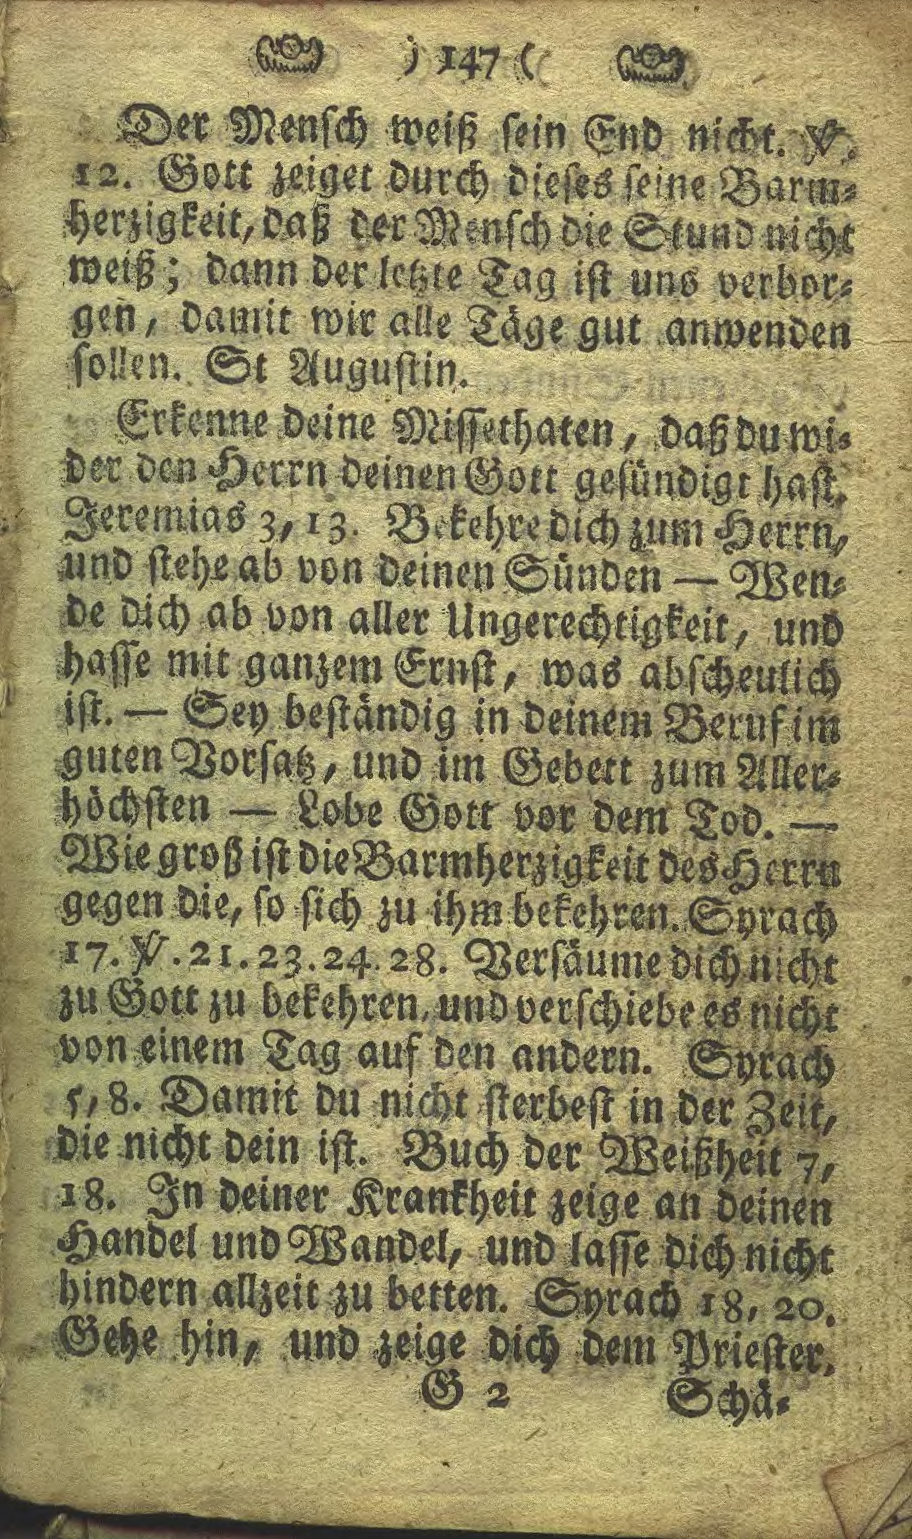 ) 147 (
Der Mensch weiß sein End nicht. ℣.
12. Gott zeiget durch dieses seine Barm-
herzigkeit, daß der Mensch die Stund nicht
weiß; dann der letzte Tag ist uns verbor-
gen, damit wir alle Täge gut anwenden
sollen. St Augustin.
Erkenne deine Missethaten, daß du wi-
der den Herrn deinen Gott gesündigt hast.
Jeremias 3, 13. Bekehre dich zum Herrn,
und stehe ab von deinen Sünden — Wen-
de dich ab von aller Ungerechtigkeit, und
hasse mit ganzem Ernst, was abscheulich
ist. — Sey beständig in deinem Beruf im
guten Vorsatz, und im Gebett zum Aller-
höchsten — Lobe Gott vor dem Tod. —
Wie groß ist die Barmherzigkeit des Herrn
gegen die, so sich zu ihm bekehren. Syrach
17. ℣. 21. 23. 24. 28. Versäume dich nicht
zu Gott zu bekehren, und verschiebe es nicht
von einem Tag auf den andern. Syrach
5, 8. Damit du nicht sterbest in der Zeit,
die nicht dein ist. Buch der Weißheit 7,
18. In deiner Krankheit zeige an deinen
Handel und Wandel, und lasse dich nicht
hindern allzeit zu betten. Syrach 18, 20.
Gehe hin, und zeige dich dem Priester.
G 2 Schä-